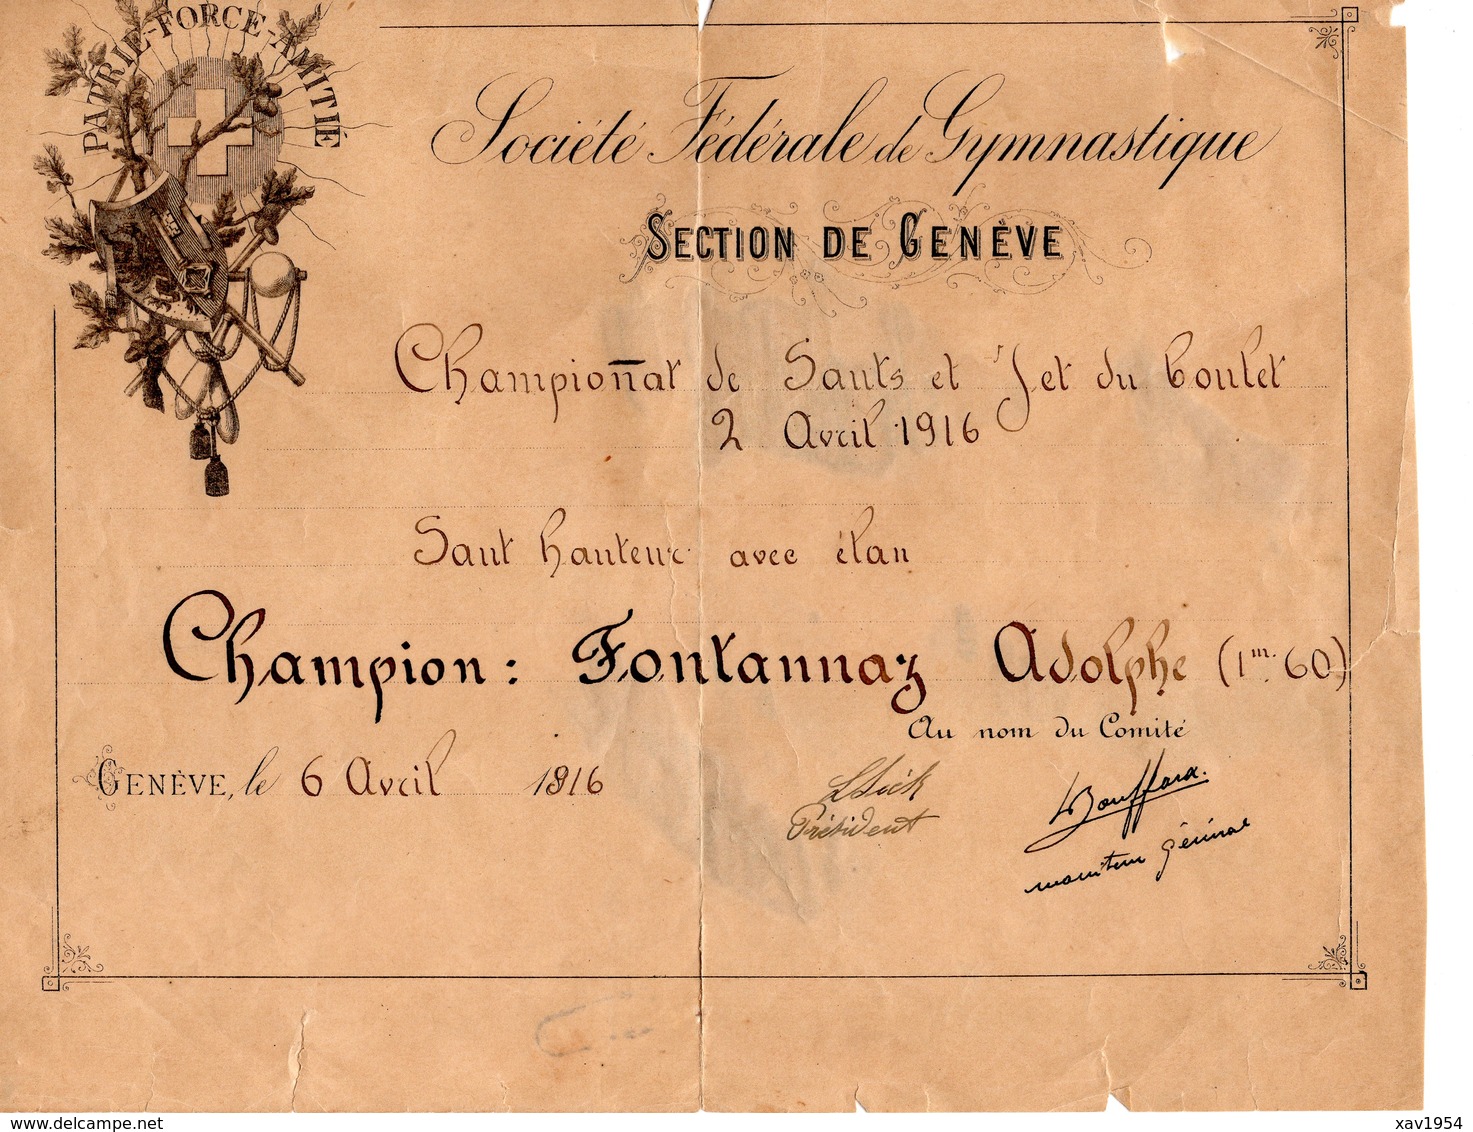 PATRIE-FORCE-AMITIÉ
Société Fédérale de Gymnastique
SECTION DE GENÈVE
Championnat de Sauts et Jet du boulet
2 Avril 1916
Saut hauteur avec élan
Champion : Fontannaz Adolphe (1m.60)
Au nom du Comité
GENÈVE, le 6 Avril 1916
Président
moniteur général
xav1954